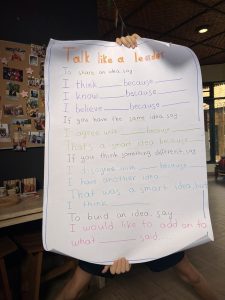 Talk like a leader
To share an idea, say
I think ____ because ____
I know ____ because ____
I believe ____ because ____
If you have the same idea say
I agree with ____ because ____
That's a smart idea because ____
If you think something different, say
I disagree with ____ because ____
I have another idea ____
That was a smart idea, but
I think ____
To build an idea, say
I would like to add on to
what ____ said